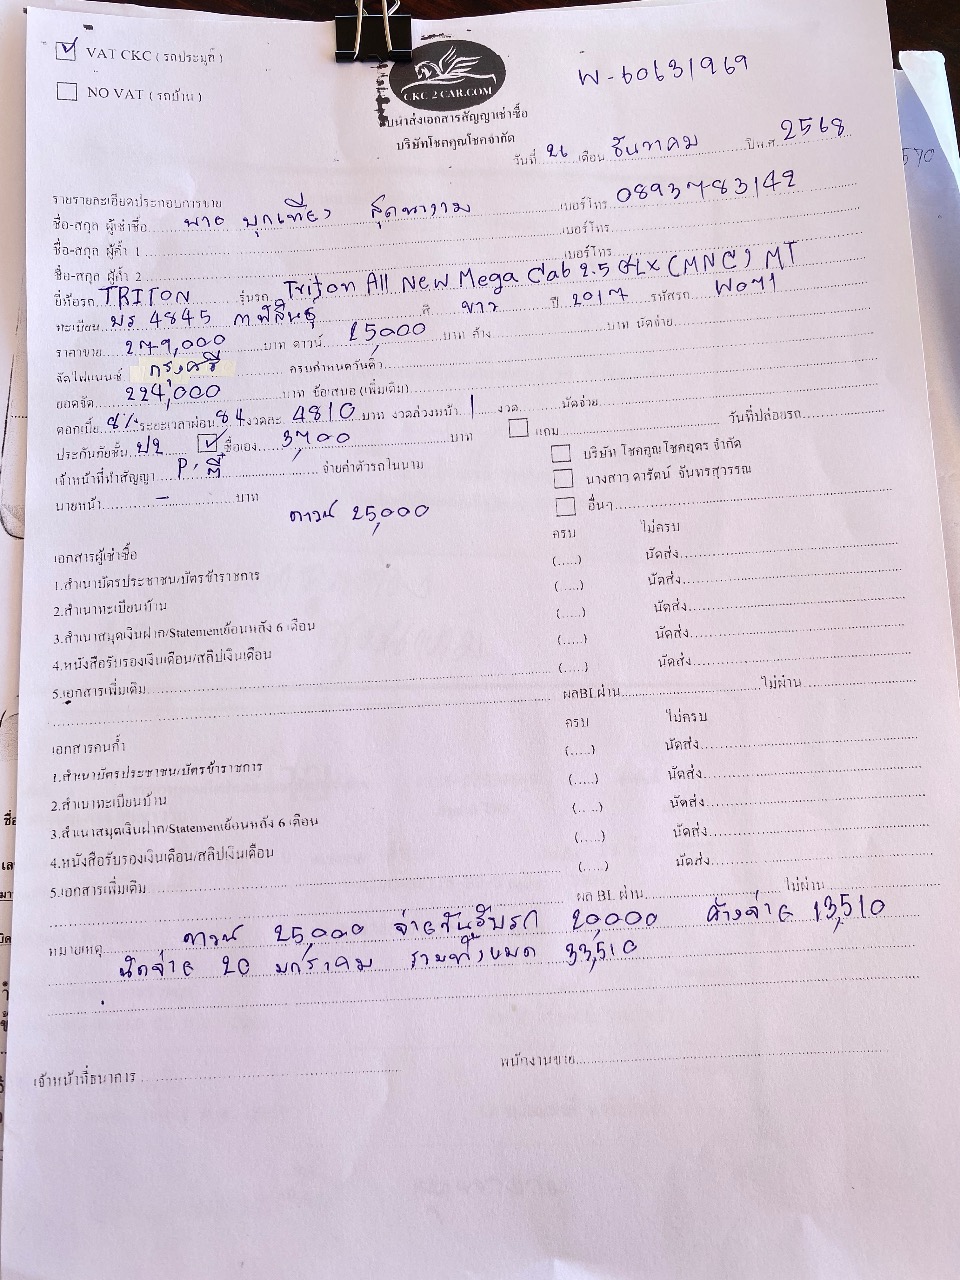 VAT CKC ( รถประมูล )
NO VAT ( รถบ้าน )
CKC 2 CAR.COM
W-60631969
ใบนำส่งเอกสารสัญญาเช่าซื้อ
บริษัทโชคคูณโชคจำกัด
วันที่ 26 เดือน ธันวาคม ปีพ.ศ. 2568
รายรายละเอียดประกอบการขาย
ชื่อ-สกุล ผู้เช่าซื้อ นาย บุกเทียว สุดหางาม เบอร์โทร 0893783142
ชื่อ-สกุล ผู้ค้ำ 1 เบอร์โทร
ชื่อ-สกุล ผู้ค้ำ 2 เบอร์โทร
ยี่ห้อรถ TRITON รุ่นรถ Triton All New Mega Cab 2.5 GLX (MNC) MT
ทะเบียน บร 4845 กาฬสินธุ์ สี ขาว ปี 2017 รหัสรถ W071
ราคาขาย 279,000 บาท ดาวน์ 25,000 บาท ค้าง บาท นัดจ่าย
จัดไฟแนนซ์ กรุงศรี ครบกำหนดวันดิ้ว
ยอดจัด 224,000 บาท ข้อเสนอ (เพิ่มเติม)
ดอกเบี้ย 8% ระยะเวลาผ่อน 84 งวดละ 4810 บาท งวดล่วงหน้า 1 งวด นัดจ่าย
ประกันภัยชั้น ป2 ซื้อเอง 3,700 บาท แถม วันที่ปล่อยรถ
เจ้าหน้าที่ทำสัญญา P' ตี๋ จ่ายค่าตัวรถในนาม บริษัท โชคคูณโชคฤดร จำกัด
นายหน้า - บาท นางสาว ดารัตน์ จันทรสุวรรณ
ดาวน์ 25,000 อื่นๆ
เอกสารผู้เช่าซื้อ ครบ ไม่ครบ
1.สำเนาบัตรประชาชน/บัตรข้าราชการ (.....) นัดส่ง
2.สำเนาทะเบียนบ้าน (.....) นัดส่ง
3.สำเนาสมุดเงินฝาก/Statementย้อนหลัง 6 เดือน (.....) นัดส่ง
4.หนังสือรับรองเงินเดือน/สลิปเงินเดือน (.....) นัดส่ง
5.เอกสารเพิ่มเติม (.....) นัดส่ง
ผลBI.ผ่าน ไม่ผ่าน
เอกสารคนค้ำ ครบ ไม่ครบ
1.สำเนาบัตรประชาชน/บัตรข้าราชการ (.....) นัดส่ง
2.สำเนาทะเบียนบ้าน (.....) นัดส่ง
3.สำเนาสมุดเงินฝาก/Statementย้อนหลัง 6 เดือน (.....) นัดส่ง
4.หนังสือรับรองเงินเดือน/สลิปเงินเดือน (.....) นัดส่ง
5.เอกสารเพิ่มเติม (.....) นัดส่ง
ผล BI. ผ่าน ไม่ผ่าน
หมายเหตุ ดาวน์ 25,000 จ่ายวันรับรถ 20,000 ค้างจ่าย 13,510
นัดจ่าย 20 มกราคม รวมทั้งหมด 33,510
เจ้าหน้าที่ธนาคาร พนักงานขาย